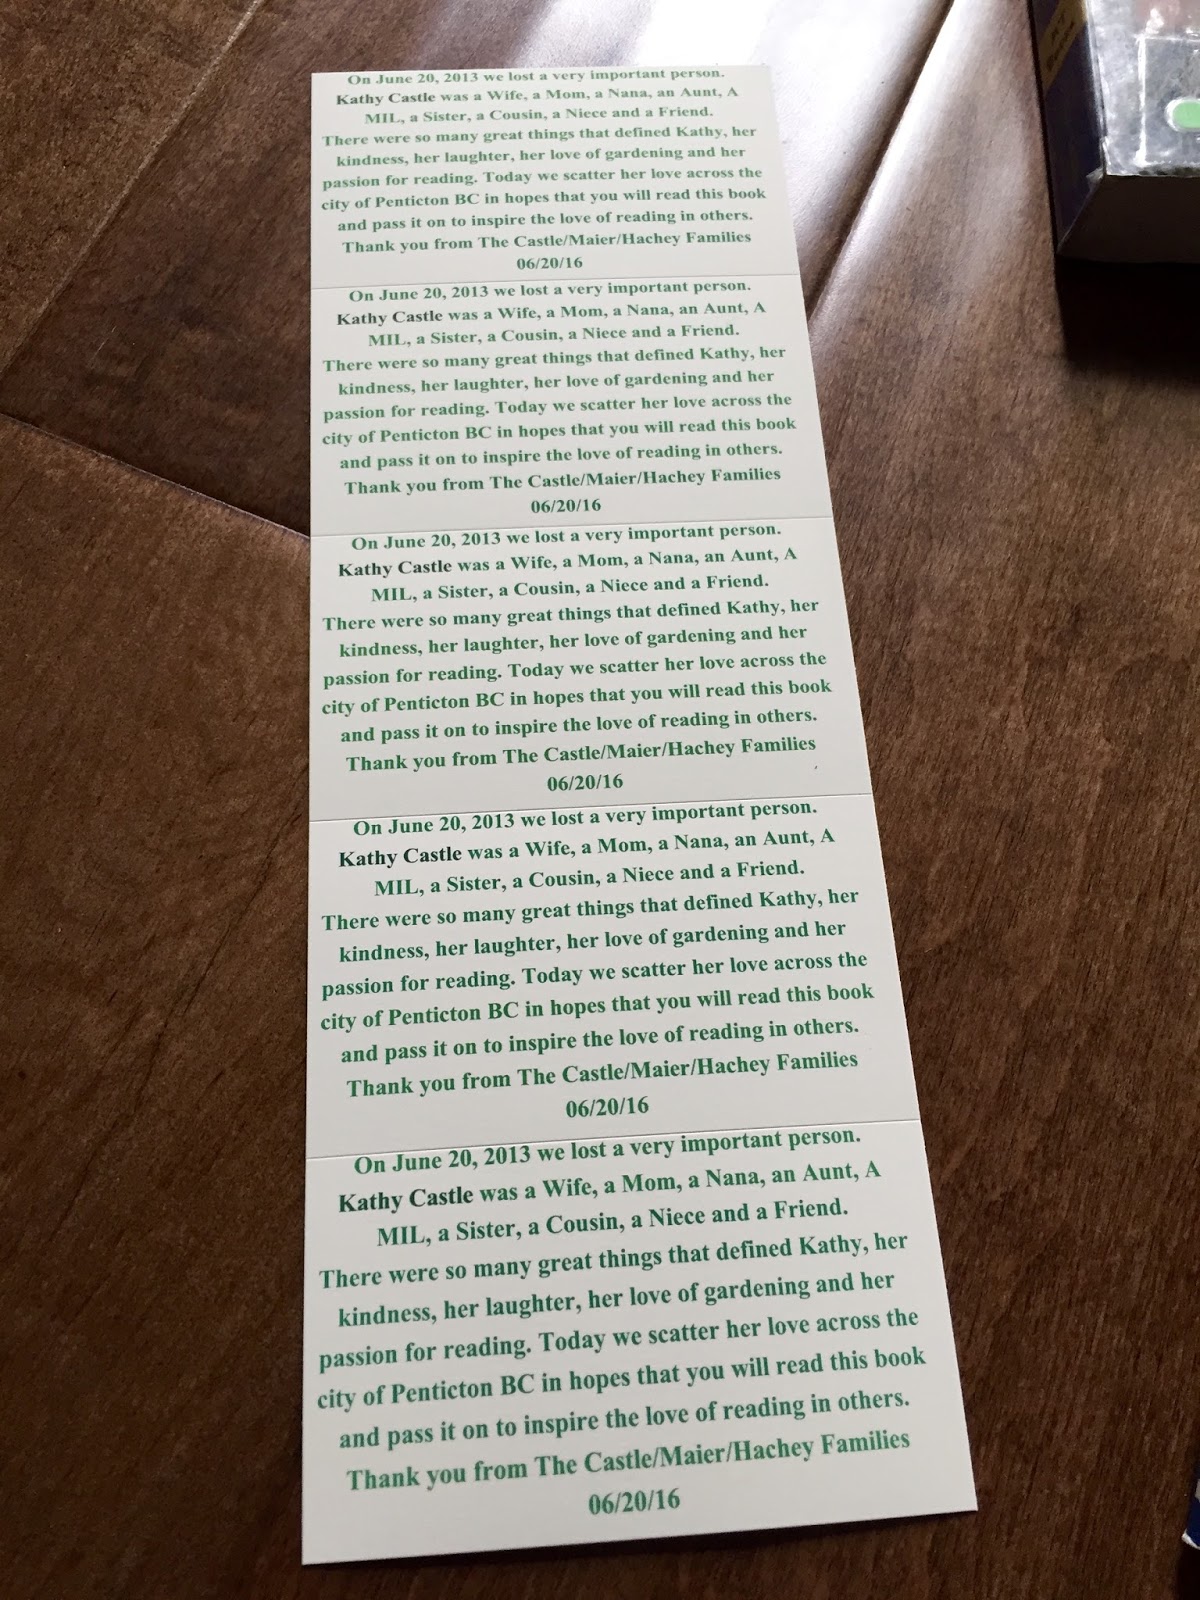 On June 20, 2013 we lost a very important person.
Kathy Castle was a Wife, a Mom, a Nana, an Aunt, A
MIL, a Sister, a Cousin, a Niece and a Friend.
There were so many great things that defined Kathy, her
kindness, her laughter, her love of gardening and her
passion for reading. Today we scatter her love across the
city of Penticton BC in hopes that you will read this book
and pass it on to inspire the love of reading in others.
Thank you from The Castle/Maier/Hachey Families
06/20/16
On June 20, 2013 we lost a very important person.
Kathy Castle was a Wife, a Mom, a Nana, an Aunt, A
MIL, a Sister, a Cousin, a Niece and a Friend.
There were so many great things that defined Kathy, her
kindness, her laughter, her love of gardening and her
passion for reading. Today we scatter her love across the
city of Penticton BC in hopes that you will read this book
and pass it on to inspire the love of reading in others.
Thank you from The Castle/Maier/Hachey Families
06/20/16
On June 20, 2013 we lost a very important person.
Kathy Castle was a Wife, a Mom, a Nana, an Aunt, A
MIL, a Sister, a Cousin, a Niece and a Friend.
There were so many great things that defined Kathy, her
kindness, her laughter, her love of gardening and her
passion for reading. Today we scatter her love across the
city of Penticton BC in hopes that you will read this book
and pass it on to inspire the love of reading in others.
Thank you from The Castle/Maier/Hachey Families
06/20/16
On June 20, 2013 we lost a very important person.
Kathy Castle was a Wife, a Mom, a Nana, an Aunt, A
MIL, a Sister, a Cousin, a Niece and a Friend.
There were so many great things that defined Kathy, her
kindness, her laughter, her love of gardening and her
passion for reading. Today we scatter her love across the
city of Penticton BC in hopes that you will read this book
and pass it on to inspire the love of reading in others.
Thank you from The Castle/Maier/Hachey Families
06/20/16
On June 20, 2013 we lost a very important person.
Kathy Castle was a Wife, a Mom, a Nana, an Aunt, A
MIL, a Sister, a Cousin, a Niece and a Friend.
There were so many great things that defined Kathy, her
kindness, her laughter, her love of gardening and her
passion for reading. Today we scatter her love across the
city of Penticton BC in hopes that you will read this book
and pass it on to inspire the love of reading in others.
Thank you from The Castle/Maier/Hachey Families
06/20/16